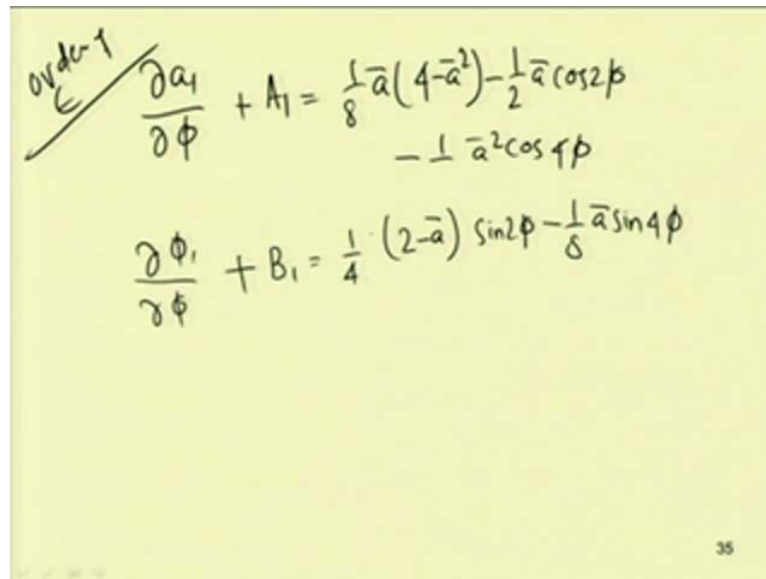 order of ε
∂a₁/∂ϕ + A₁ = 1/8 ā(4-ā²) - 1/2 ā cos2ϕ
- 1 ā² cos 4ϕ
∂ϕ₁/∂ϕ + B₁ = 1/4 (2-ā) sin2ϕ - 1/8 ā sin4ϕ
35